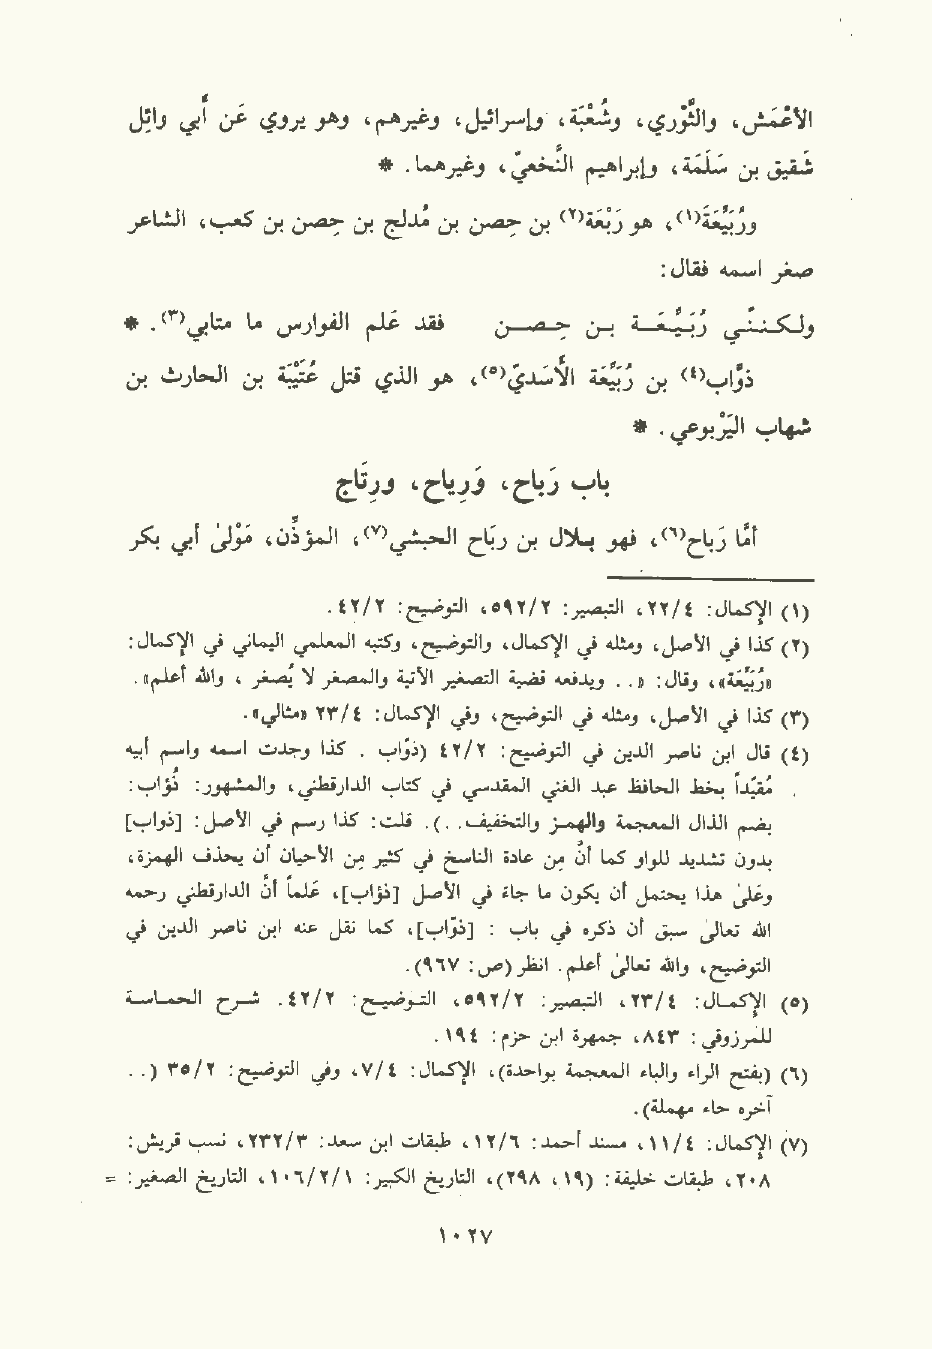 الأعْمَش، والثَّوْري، وشُعْبَة، وإسرائيل، وغيرهم، وهو يروي عَن أَبي وائِل
شَقيق بن سَلَمَة، وإبراهيم النَّخعيّ، وغيرهما. *
ورُبَيْعَة(١)، هو رَبْعَة(٢) بن حِصن بن مُدلج بن حِصن بن كعب، الشاعر
صغر اسمه فقال:
ولـكـنـنْـي رُبَـيْـعَــة بـن حِـصــن فقد عَلم الفوارس ما متابي(٣). *
ذوَّاب(٤) بن رُبَيِّعَة الأَسَديّ(٥)، هو الذي قتل عُتَيْبَة بن الحارث بن
شهاب اليَرْبوعي. *
باب رَباح، وَرِياح، ورِتَاج
أمَّا رَباح(٦)، فهو بِلال بن رَبَاح الحبشي(٧)، المؤذِّن، مَوْلىٰ أبي بكر
(١) الإكمال: ٢٢/٤، التبصير: ٥٩٢/٢، التوضيح: ٤٢/٢.
(٢) كذا في الأصل، ومثله في الإكمال، والتوضيح، وكتبه المعلمي اليماني في الإكمال:
«رُبَيْعَة»، وقال: «.. ويدفعه قضية التصغير الآتية والمصغر لا يُصغر، والله أعلم».
(٣) كذا في الأصل، ومثله في التوضيح، وفي الإكمال: ٢٣/٤ «مثالي».
(٤) قال ابن ناصر الدين في التوضيح: ٤٢/٢ (ذوّاب. كذا وجدت اسمه واسم أبيه
مقيّداً بخط الحافظ عبد الغني المقدسي في كتاب الدارقطني، والمشهور: ذُؤاب:
بضم الذال المعجمة والهمز والتخفيف..). قلت: كذا رسم في الأصل: [ذواب]
بدون تشديد للواو كما أنّ مِن عادة الناسخ في كثير مِن الأحيان أن يحذف الهمزة،
وعلىٰ هذا يحتمل أن يكون ما جاء في الأصل [ذؤاب]، عَلماً أنَّ الدارقطني رحمه
الله تعالىٰ سبق أن ذكره في باب: [ذوّاب]، كما نقل عنه ابن ناصر الدين في
التوضيح، والله تعالىٰ أعلم. انظر (ص: ٩٦٧).
(٥) الإكمال: ٢٣/٤، التبصير: ٥٩٢/٢، التوضيح: ٤٢/٢. شرح الحماسة
للمرزوقي: ٨٤٣، جمهرة ابن حزم: ١٩٤.
(٦) (بفتح الراء والباء المعجمة بواحدة)، الإكمال: ٧/٤، وفي التوضيح: ٣٥/٢ (..
آخره حاء مهملة).
(٧) الإكمال: ١١/٤، مسند أحمد: ١٢/٦، طبقات ابن سعد: ٢٣٢/٣، نسب قريش:
٢٠٨، طبقات خليفة: (١٩، ٢٩٨)، التاريخ الكبير: ١٠٦/٢/١، التاريخ الصغير: =
١٠٢٧